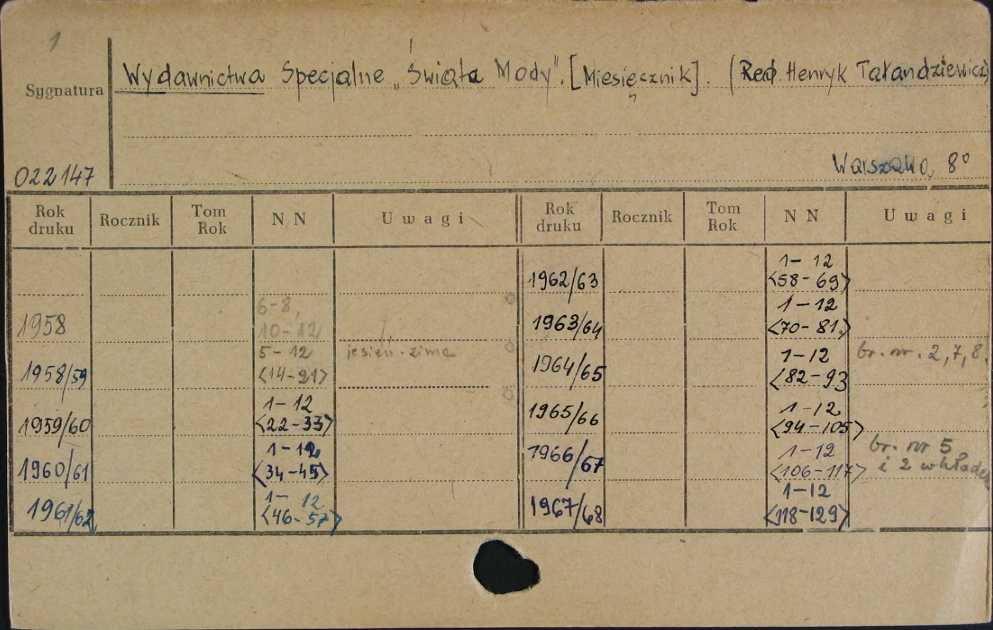 1
Wydawnictwa Specjalne „Świąta Mody". [Miesięcznik]. (Red. Henryk Tałandziewicz)
Sygnatura
Warszawa, 8°
022147
Rok druku Rocznik Tom Rok NN Uwagi Rok druku Rocznik Tom Rok NN Uwagi
1962/63 1-12 <58-69>
1958 6-8, 10-12
1963/64 1-12 <70-81>
1958/59 5-12 <14-21> jesień-zima
1964/65 1-12 <82-93 br. nr. 2,7,8.
1959/60 1-12 <22-33>
1965/66 1-12 <94-105>
1960/61 1-12 <34-45>
1966/67 1-12 <106-117> br. nr 5 i 2 wkładek
1961/62 1-12 <46-57>
1967/68 1-12 <118-129>